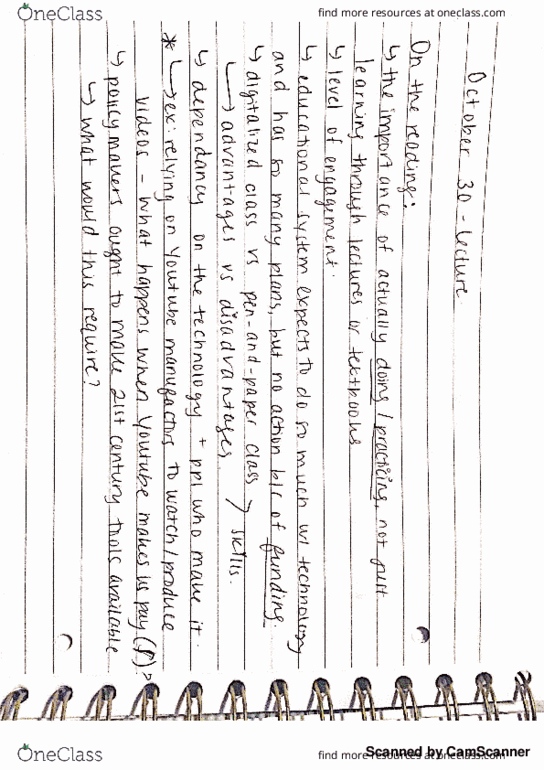 OneClass
find more resources at oneclass.com
October 30 - lecture
On the reading:
↳ the importance of actually doing / practicing, not just
learning through lectures or textbooks
↳ level of engagement.
↳ educational system expects to do so much w/ technology
and has so many plans, but no action b/c of funding.
↳ digitalized class vs pen-and-paper class > skills.
↳ advantages vs disadvantages.
↳ dependancy on the technology + ppl who make it.
* ↳ ex: relying on Youtube manufactors to watch/produce
videos - what happens when Youtube makes us pay ($)?
↳ policy makers ought to make 21st century tools available
↳ what would this require?
OneClass
find more resources at oneclass.com
Scanned by CamScanner